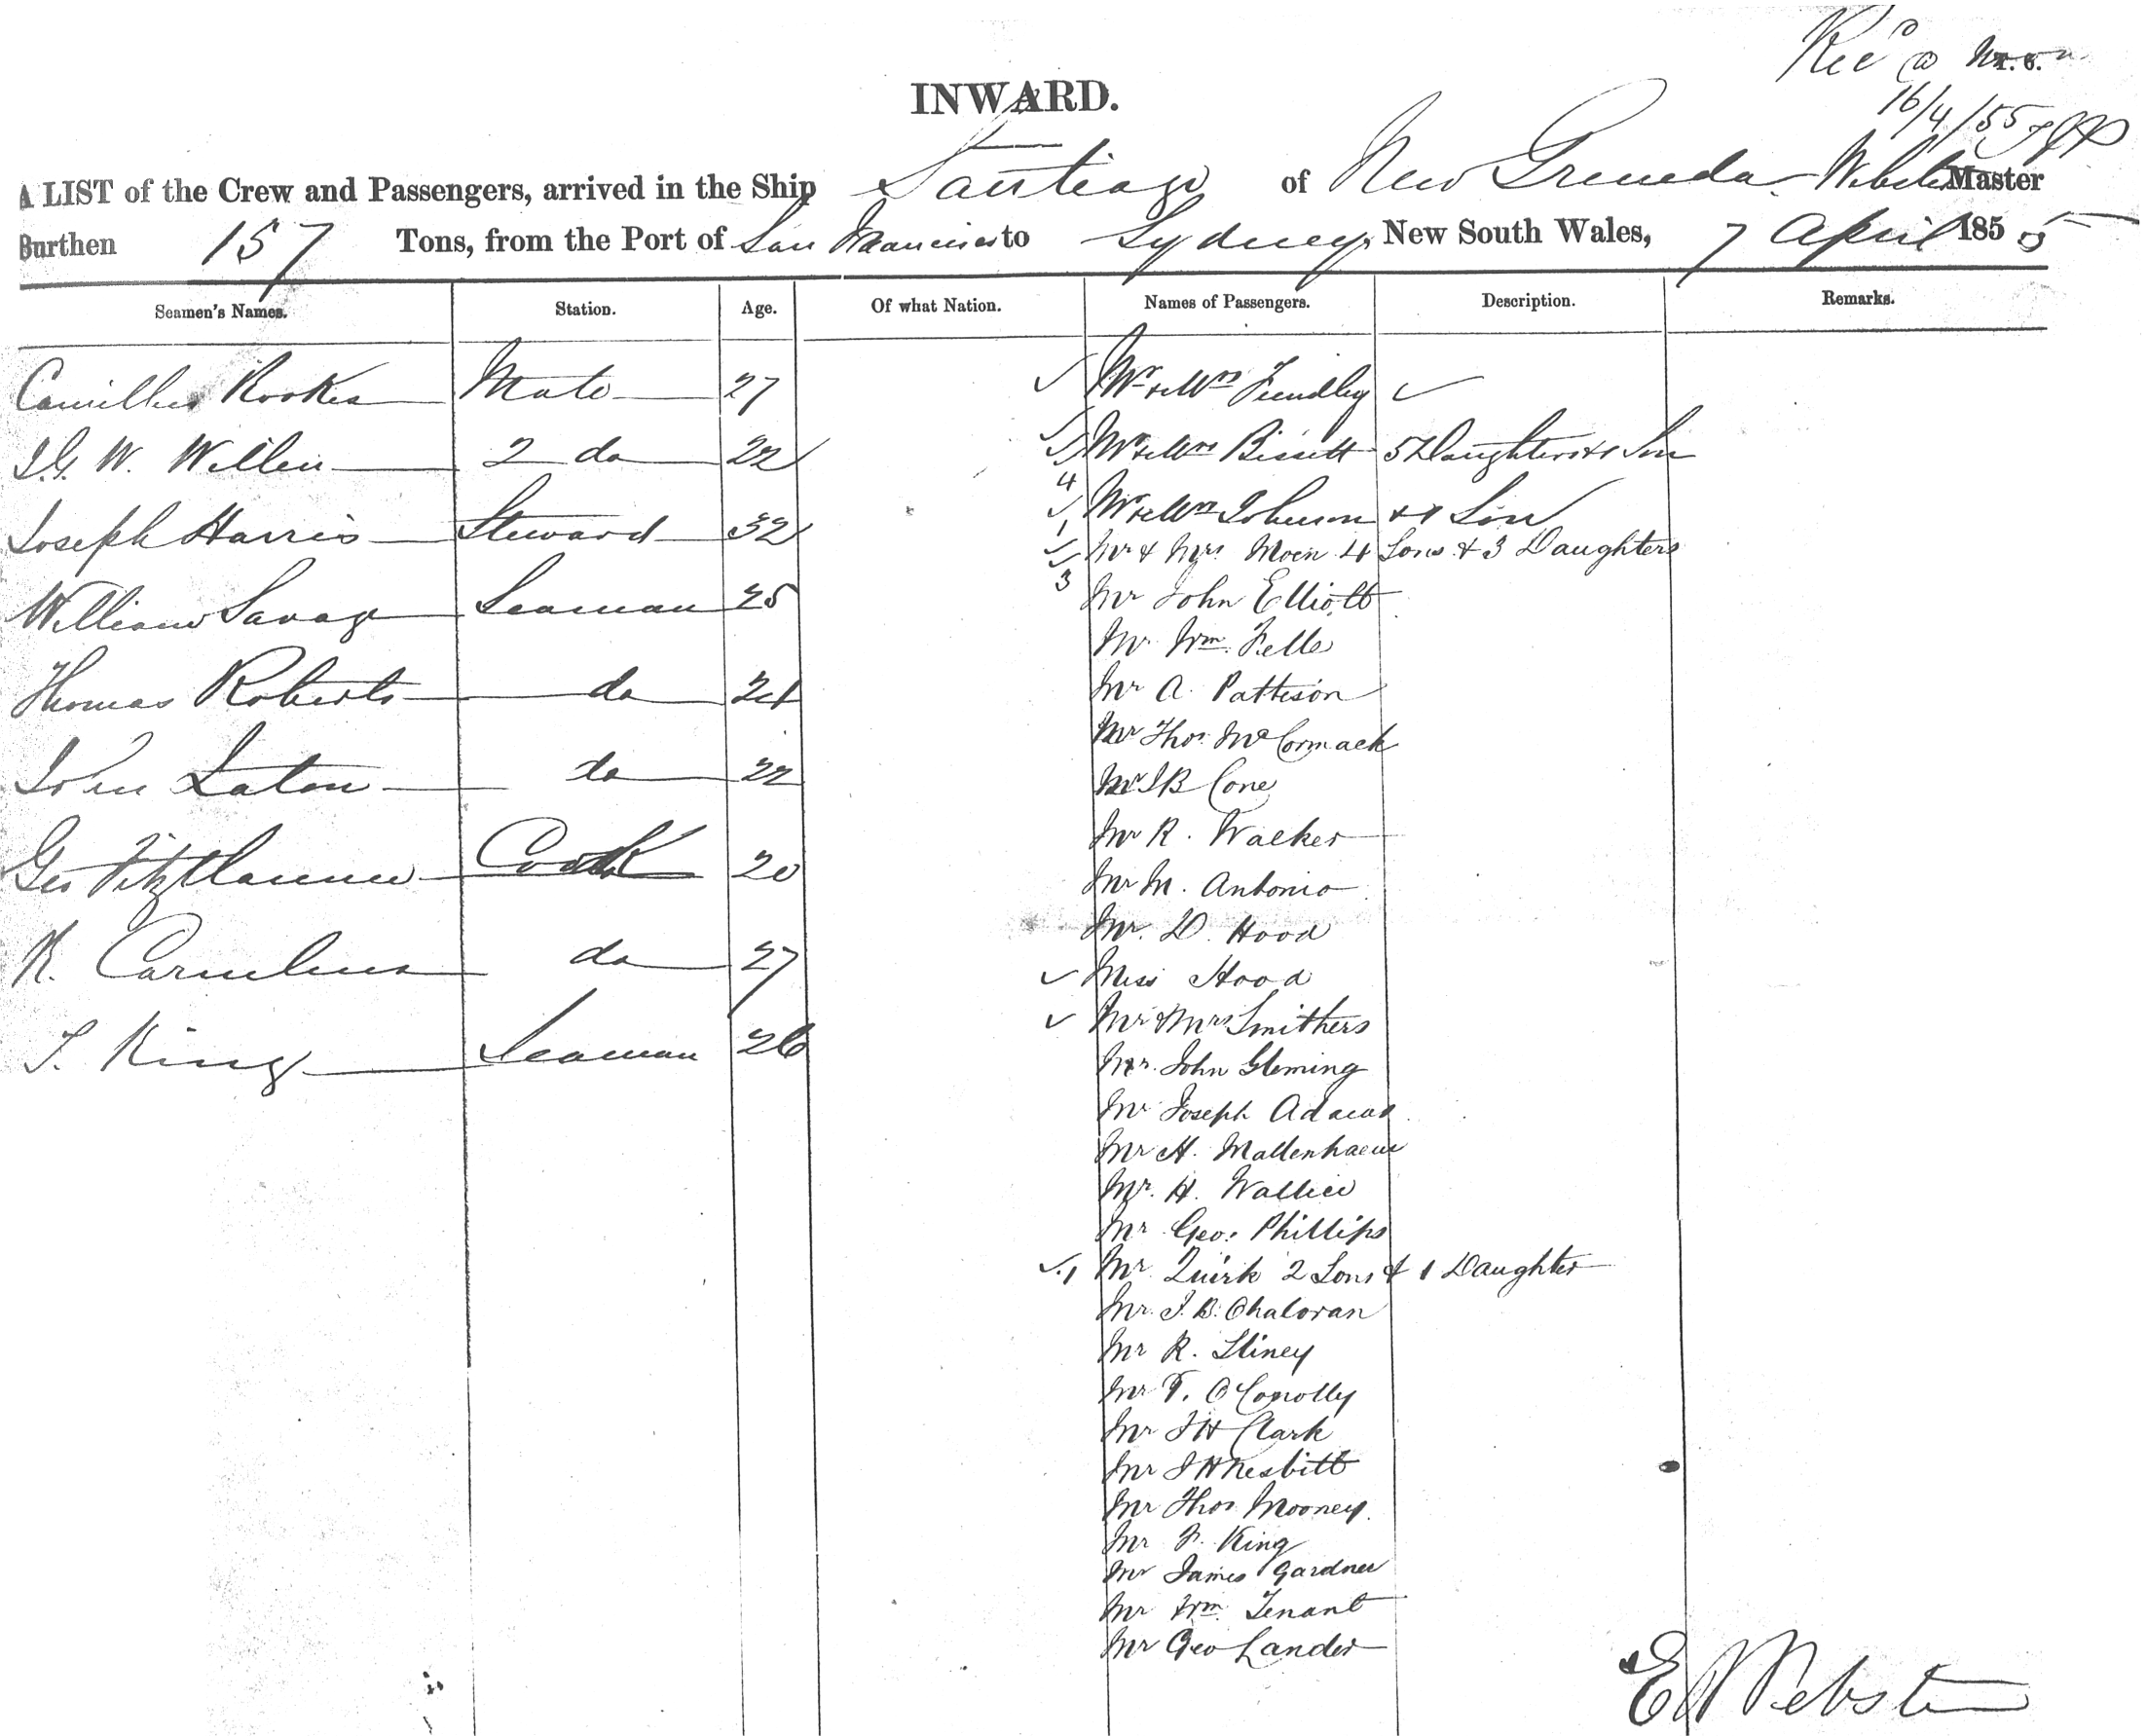 Rec'd @
16/4/55
INWARD.
A LIST of the Crew and Passengers, arrived in the Ship Santiago of New Grenada Webster Master
Burthen 157 Tons, from the Port of San Francisco to Sydney, New South Wales, 7 April 1855
Seamen's Names. Station. Age. Of what Nation. Names of Passengers. Description. Remarks.
Camillus Rookes Mate 27
2 do 22
Joseph Harris Steward 32
William Savage Seaman 25
Thomas Roberts do 21
John Laton do 22
Geo Fitzclarence Cook 20
R. Carnelius do 27
T. King Seaman 26
Mr & Mrs Fundley
Mr & Mrs Bissett 5 Daughters & 1 Son
4
Mr & Mrs Johnson & 1 Son
1
Mr & Mrs Moen 4 Sons & 3 Daughters
3
Mr John Elliott
Mr Wm. Fells
Mr A. Pattison
Mr Thos. McCormack
Mr J B Cone
Mr R. Walker
Mr M. Antonio
Mr. D. Hood
Miss Hood
Mr & Mrs Smithers
Mr. John Gleming
Mr Joseph Adams
Mr H.
Mr. H. Wallice
Mr Geo. Phillips
1 Mr Quirk 2 Sons & 1 Daughter
Mr. J. B. Ohaloran
Mr R. Sliney
Mr T. O'Conolly
Mr J H Clark
Mr J H Nesbitt
Mr Thos Mooney.
Mr F. King
Mr James Gardner
Mr Wm. Tenant
Mr Geo Lander
E Webster